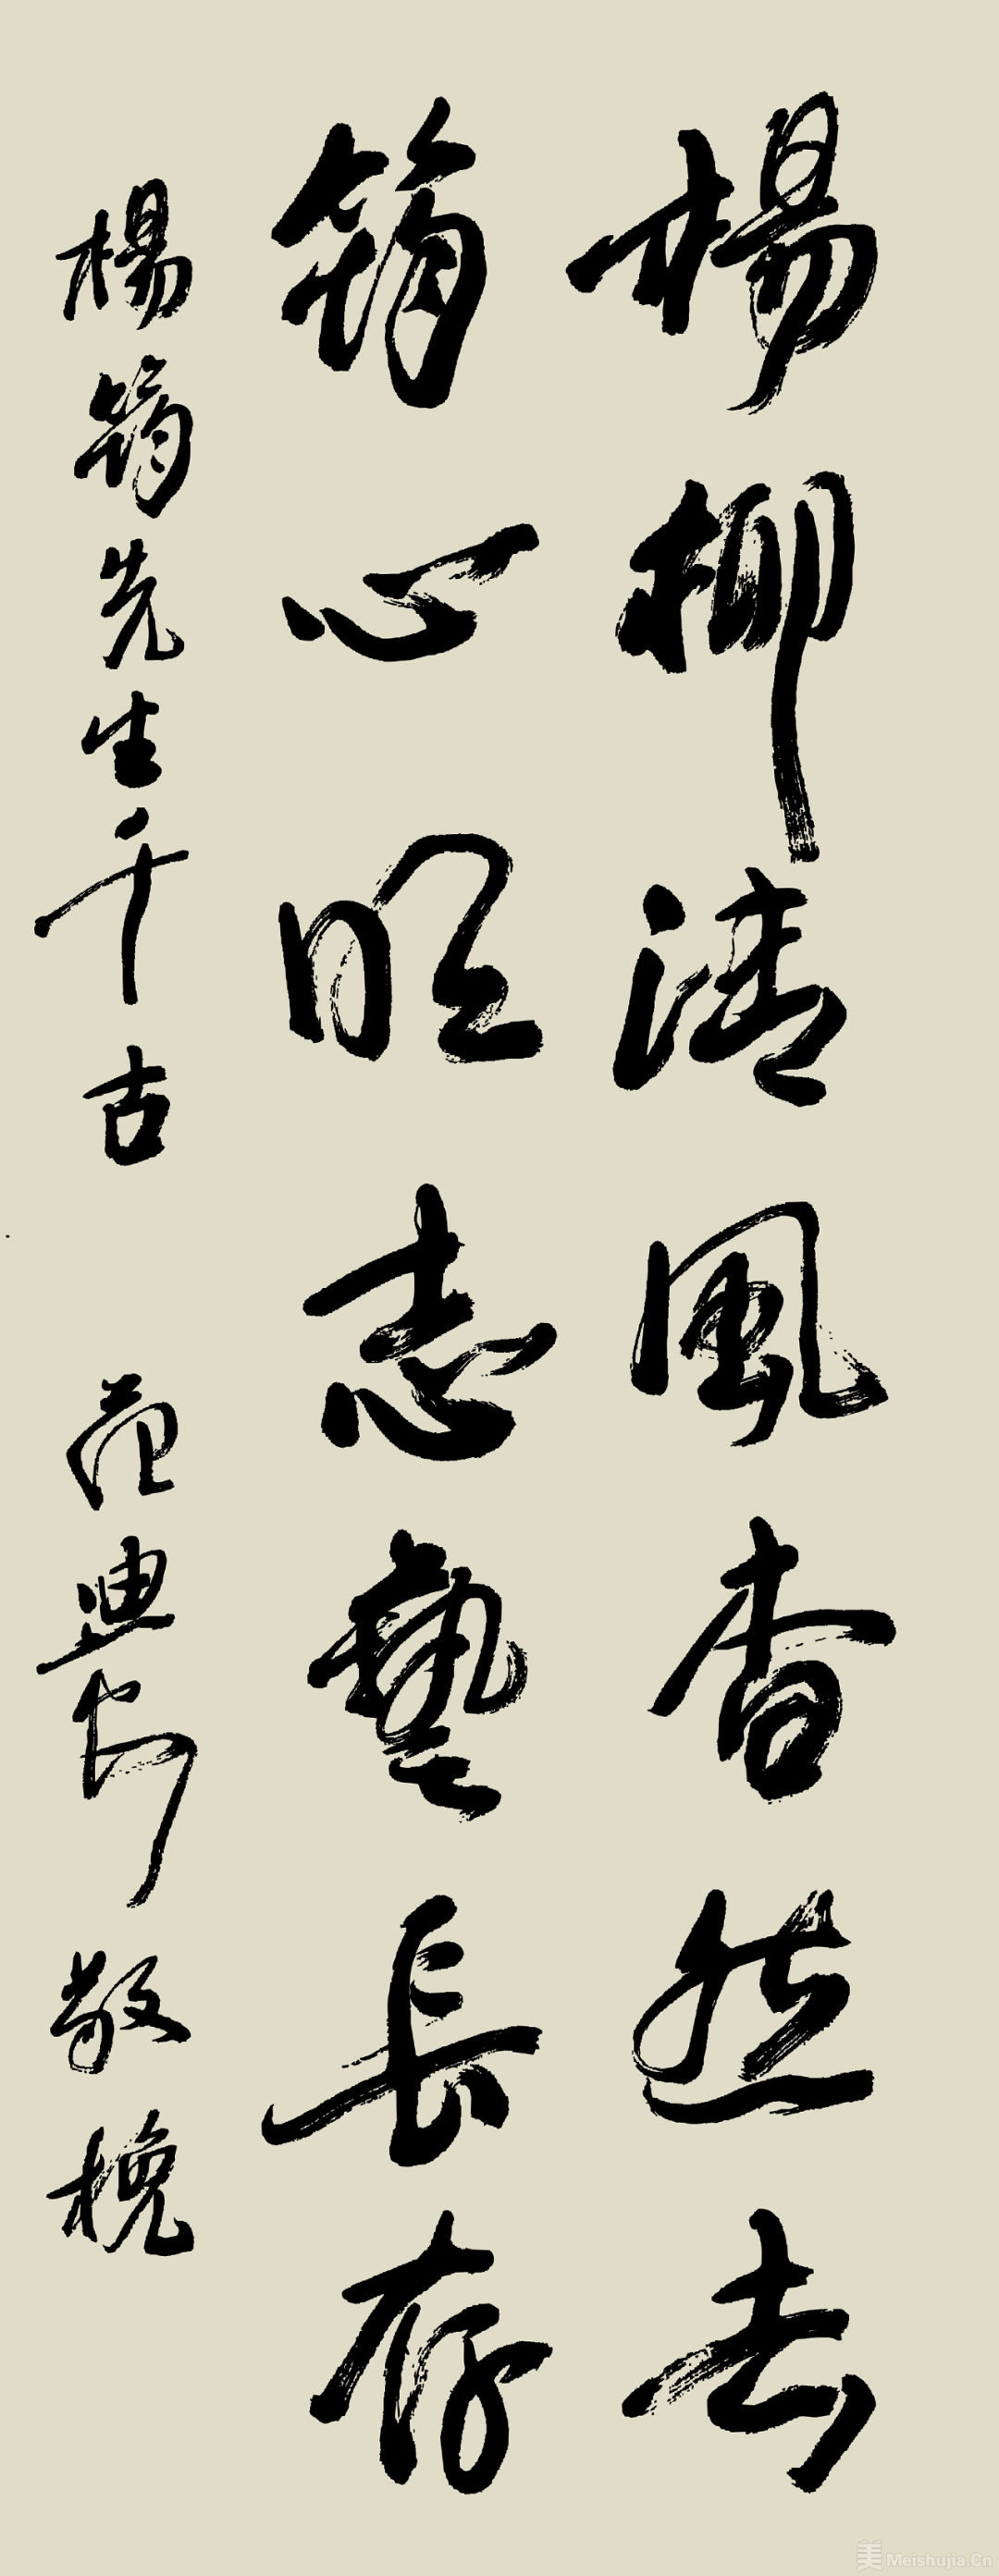 楊柳清風杳然去
筠心明志藝長存
楊筠先生千古
范迪安敬挽
美 Meishujia.Cn